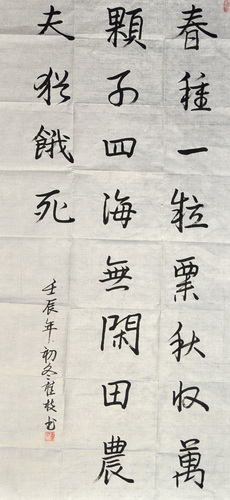 春種一粒粟秋收萬
顆子四海無閑田農
夫猶餓死
壬辰年初冬崔枝书